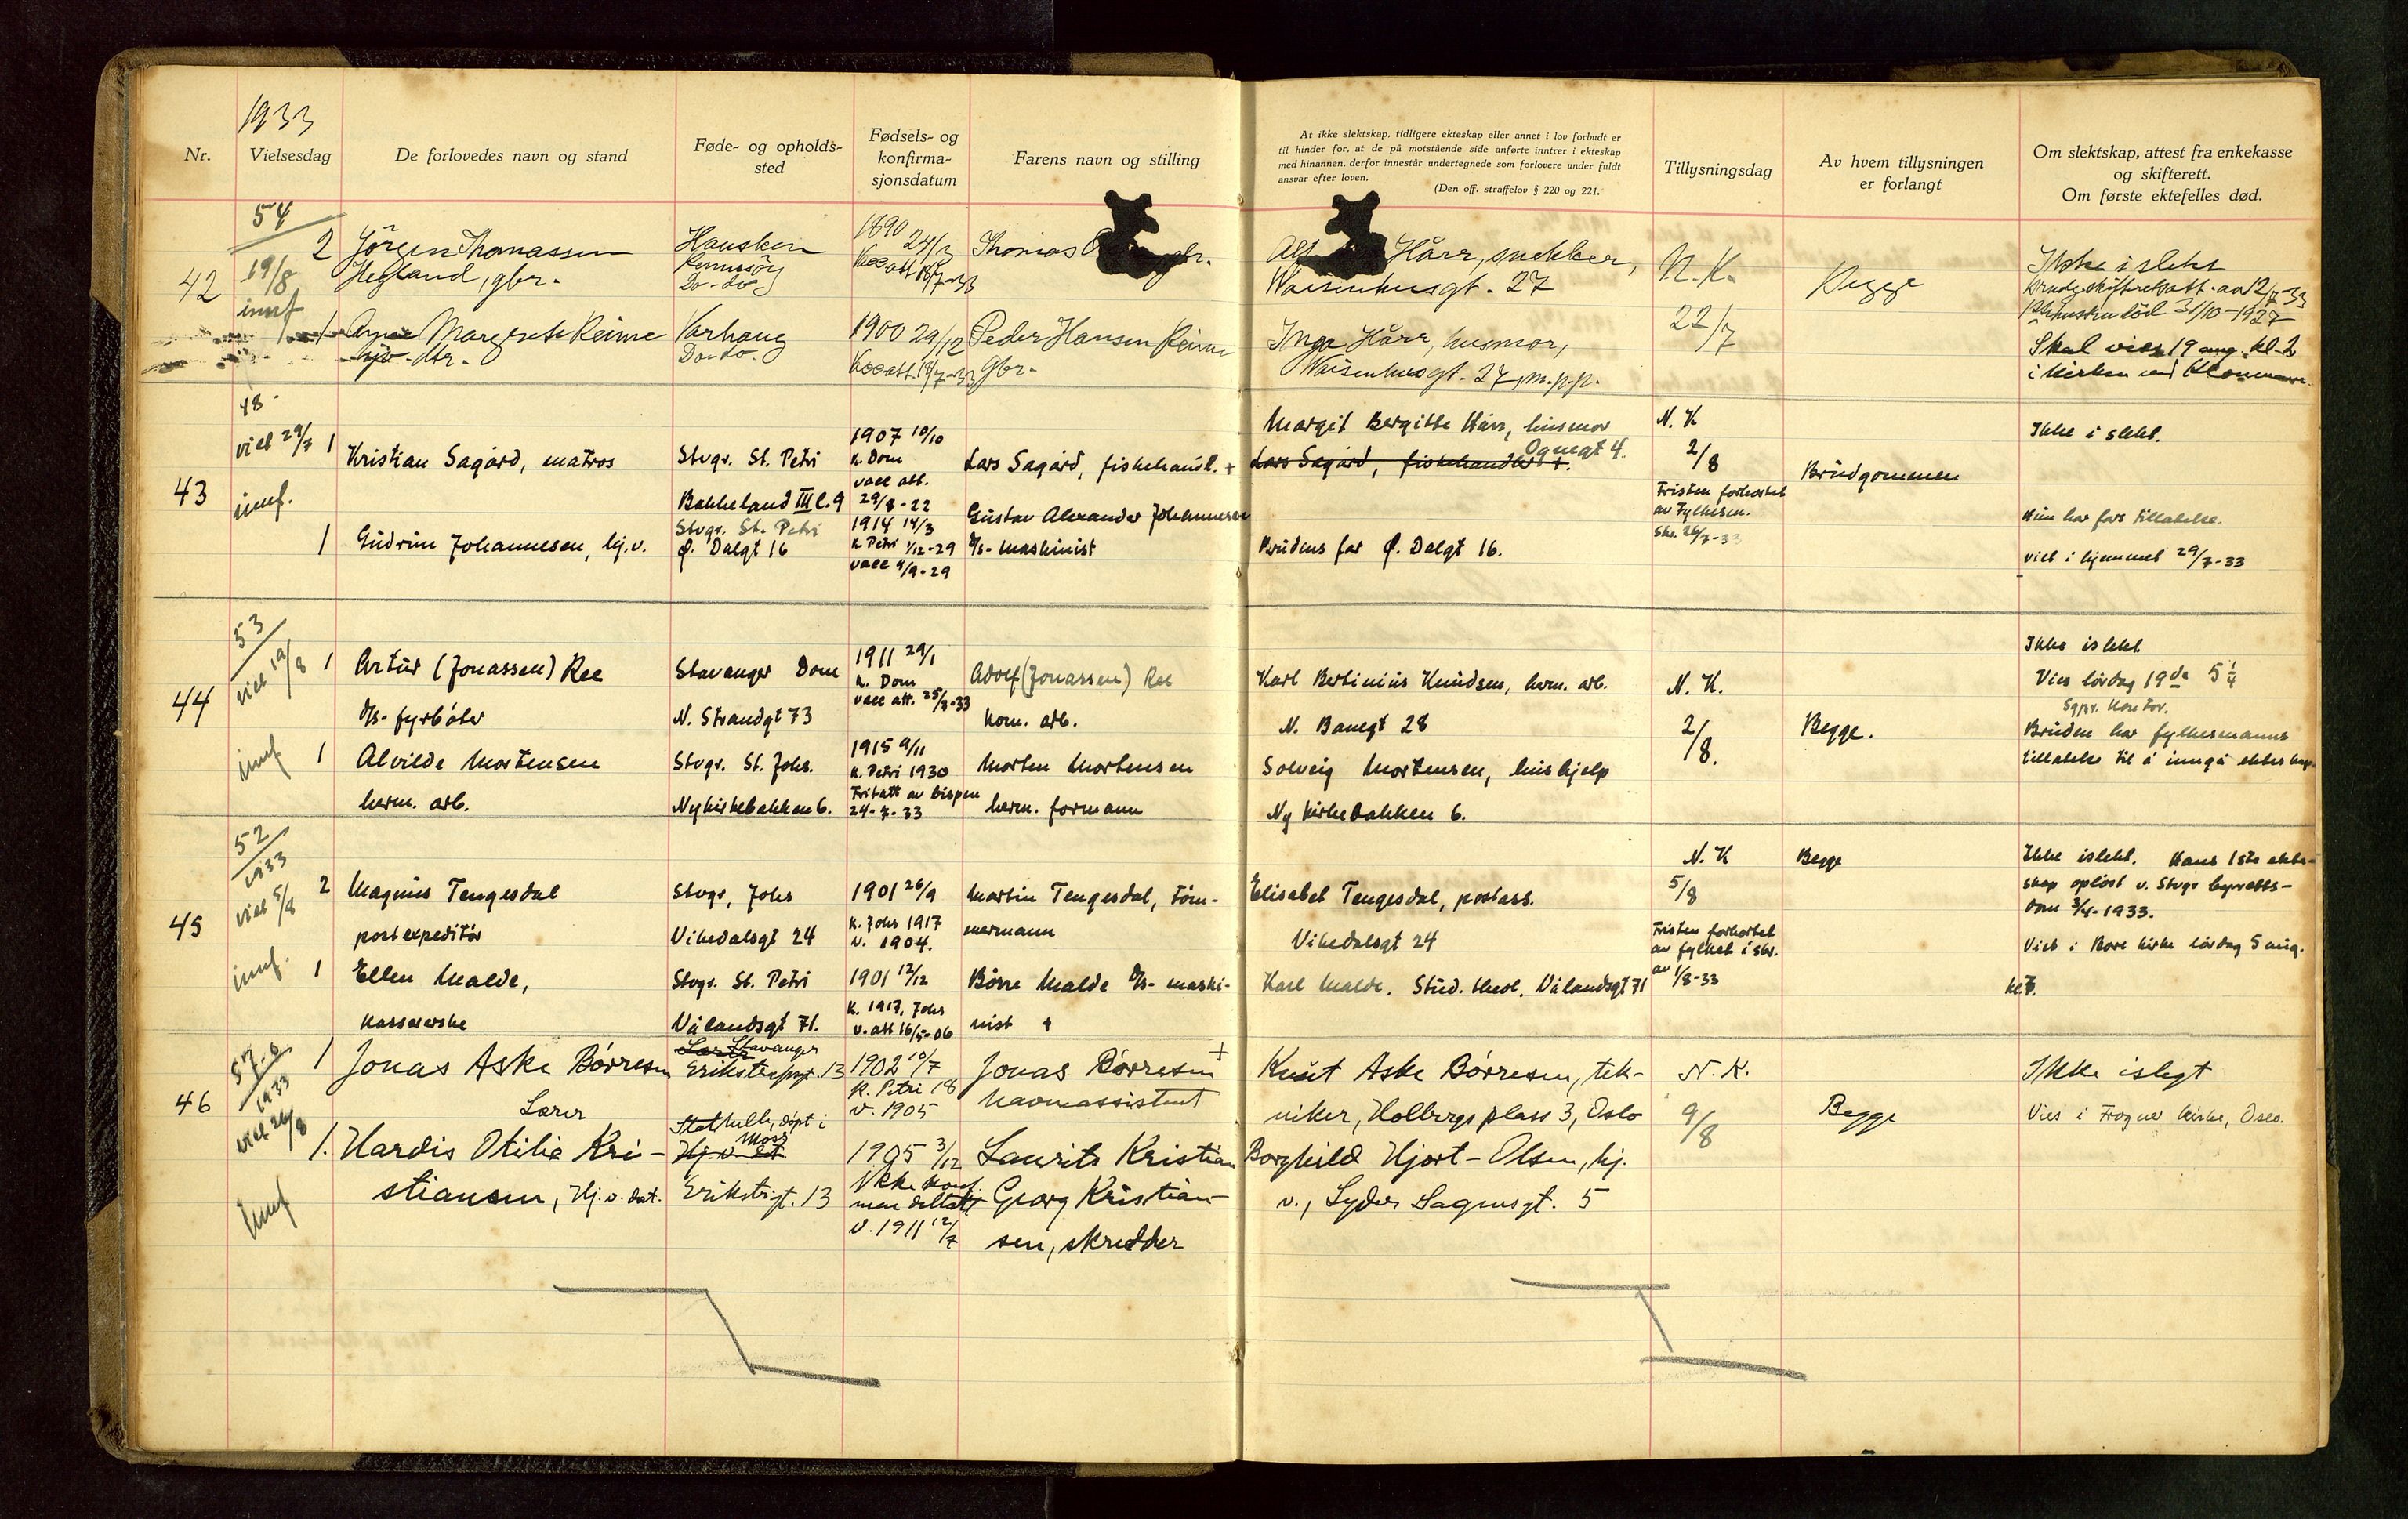 1933
Nr.
Vielsesdag
De forlovedes navn og stand
Føde- og opholds-
sted
Fødsels- og
konfirma-
sjonsdatum
Farens navn og stilling
At ikke slektskap, tidligere ekteskap eller annet i lov forbudt er
til hinder for, at de på motstående side anførte inntrer i ekteskap
med hinannen, derfor innestår undertegnede som forlovere under fuldt
ansvar efter loven.
(Den off. straffelov § 220 og 221.
Tillysningsdag
Av hvem tillysningen
er forlangt
Om slektskap, attest fra enkekasse
og skifterett.
Om første ektefelles død.
42
54
19/8
innf
2 Jörgen Thomassen
Hegland, gbr.
Hausken
Rennesöy
Do - do
1890 24/3
Thomas
gbr.
Hårr, snekker,
Waisenhusgt. 27
N. K.
22/7
Begge
Ikke i slekt
1 Margrete Reime
dtr.
Varhaug
Do - do.
1900 29/12
Peder Hansen Reime
gbr.
Inga Hårr, husmor,
Waisenhusgt. 27, m.p.p.
Skal vies 19 aug. kl. 2
i kirken
43
48
viet 29/7
innf.
1 Kristian Sagård, matros
Stvgr. St. Petri
Bakkeland III l. 9
1907 10/10
K. Dom
vacc att.
29/8-22
Lars Sagård, fiskehandl. +
Margit Bergitte Hårr, husmor
Ognegt 4.
Lars Sagård, fiskehandler +.
N. K
2/8
Fristen forkortet
av Fylkesm.
skr. 26/7-33
Brudgommen
Ikke i slekt.
1 Gudrun Johannesen, hj.v.
Stvgr. St. Petri
Ø. Dalgt 16
1914 14/3
K. Petri 1/12-29
vacc 9/9-29
Gustav Alexander Johannesen
d/s- maskinist
Brudens far Ø. Dalgt 16.
Hun har fars tillatelse.
viet i hjemmet 29/7-33
44
53
viet 19/8
innf
1 Artur (Jonassen) Ree
d/s- fyrbøter
Stavanger Dom
N. Strandgt 73
1911 29/1
K. Dom
vacc att. 25/7-33
Adolf (Jonassen) Ree
kom. arb.
Karl Bertinius Knudsen, herm. arb.
N. Banegt 28
N. K.
2/8.
Begge.
Ikke i slekt
Vies lørdag 19de 5 1/4
Sgpr. Kontor.
1 Alvilde Mortensen
herm. arb.
Stvgr. St. Johs.
Nykirkebakken 6.
1915 9/11
K. Petri 1930
Fritatt av bispen
24-7-33
Morten Mortensen
herm. formann
Solveig Mortensen, hushjelp
Ny kirkebakken 6.
Bruden har fylkesmanns
tillatelse til å inngå ekteskap.
45
52
1933
viet 5/8
innf.
2 Magnus Tengesdal
postexpeditør
Stvgr, Johs
Vikedalsgt 24
1901 26/9
K. Johs 1917
v. 1904.
Martin Tengesdal, tøm-
mermann
Elisabet Tengesdal, postass.
Vikedalsgt 24
N. K
5/8
Fristen forkortet
av fylket i skr.
av 1/8-33
Begge
Ikke i slekt. Hans 1ste ekte-
skap opløst v. Stvgr byretts-
dom 3/4-1933.
Viet i Bore kirke lørdag 5 aug.
kl. 7.
1 Ellen Malde,
kassererske
Stvgr. St. Petri
Vålandsgt 71.
1901 12/12
K. 1917, Johs
v. att 16/5-06
Børre Malde d/s- maski-
nist +
Karl Malde. Stud. theol. Vålandsgt 71
46
57
1933
viet 26/8
Innf
1 Jonas Aske Börresen
Lærer
Stavanger
13
1902 10/7
K. Petri 18
v. 1905
Jonas Börresen +
havneassistent
Knut Aske Börresen, tek-
niker, Holbergs plass 3, Oslo
N. K.
9/8
Begge
Ikke i slegt
Vies i Frogner kirke, Oslo.
1. Hardis Otilie Kri-
stiansen, Hj. v. dat.
Stathelle, döpt i
Moss
13
1905 3/12
Ikke konf.
men deltatt
v. 1911 12/7
Laurits Kristian
Georg Kristian-
sen, skredder
Borghild Hjort-Olsen, hj.
v., Lyder Sagensgt. 5